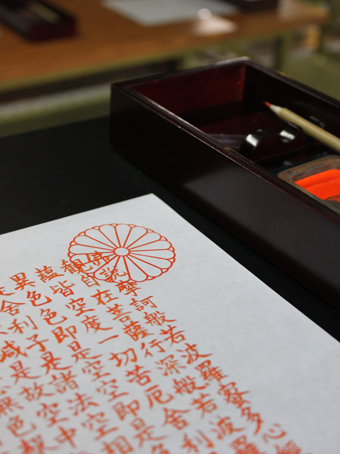 佛說摩訶般若波羅蜜多心經
觀自在菩薩行深般若波羅
蘊皆空度一切苦厄舍利
異色色即是空空即是
舍利子是諸法空相
減是故空中